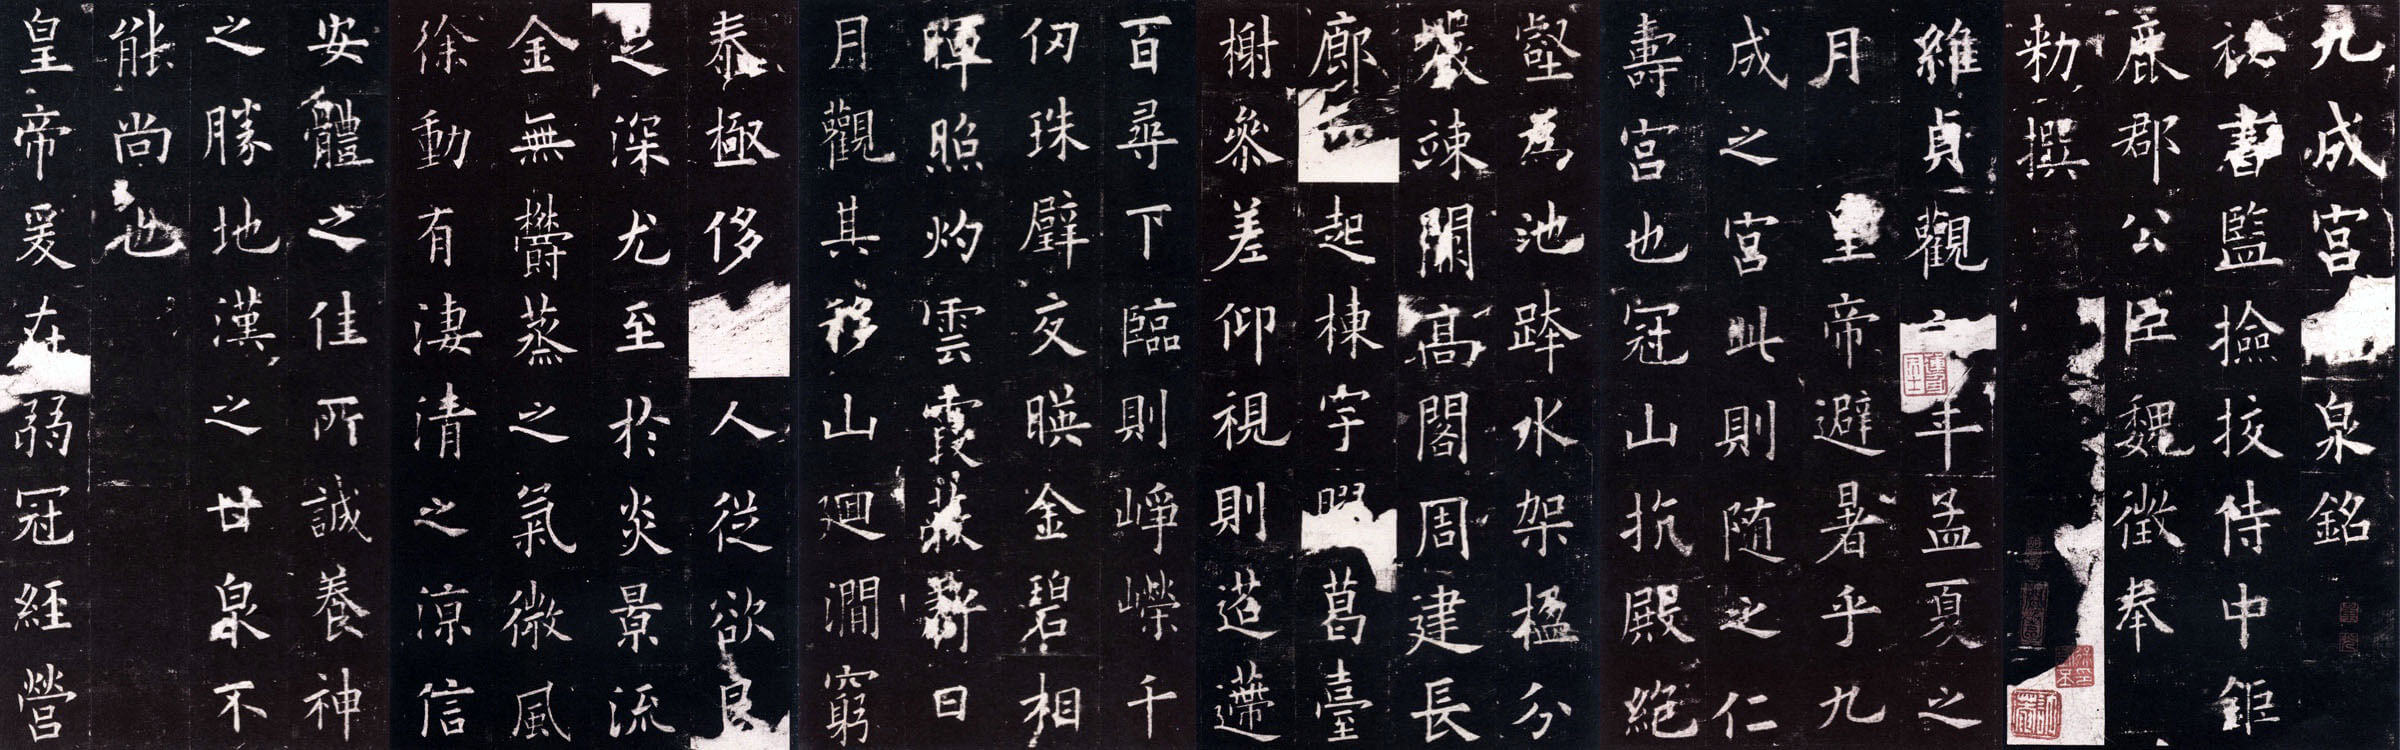 九成宮泉銘
秘書監撿挍侍中鉅
鹿郡公臣魏徵奉
勅撰
維貞觀年孟夏之
月皇帝避暑乎九
成之宮此則隨之仁
壽宮也冠山抗殿絕
壑為池跨水架楹分
巖竦闕高閣周建長
廊起棟宇葛臺
榭參差仰視則迢遰
百尋下臨則崢嶸千
仞珠璧交暎金碧相
暉照灼雲霞蔽虧日
月觀其移山迴澗窮
泰極侈人從欲良
足深尤至於炎景流
金無鬱蒸之氣微風
徐動有淒清之涼信
安體之佳所誠養神
之勝地漢之甘泉不
能尚也
皇帝爰在弱冠經營